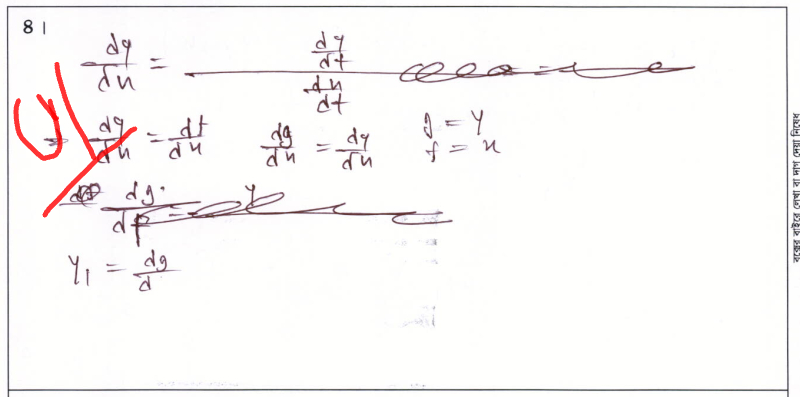 81
dy/dx = (dy/dt)/(dx/dt)
⇒ dy/dx = df/dx dg/dx = dy/dx g = y
f = x
dg/df =
y₁ = dg/d
বক্সের বাইরে লেখা বা দাগ দেয়া নিষেধ